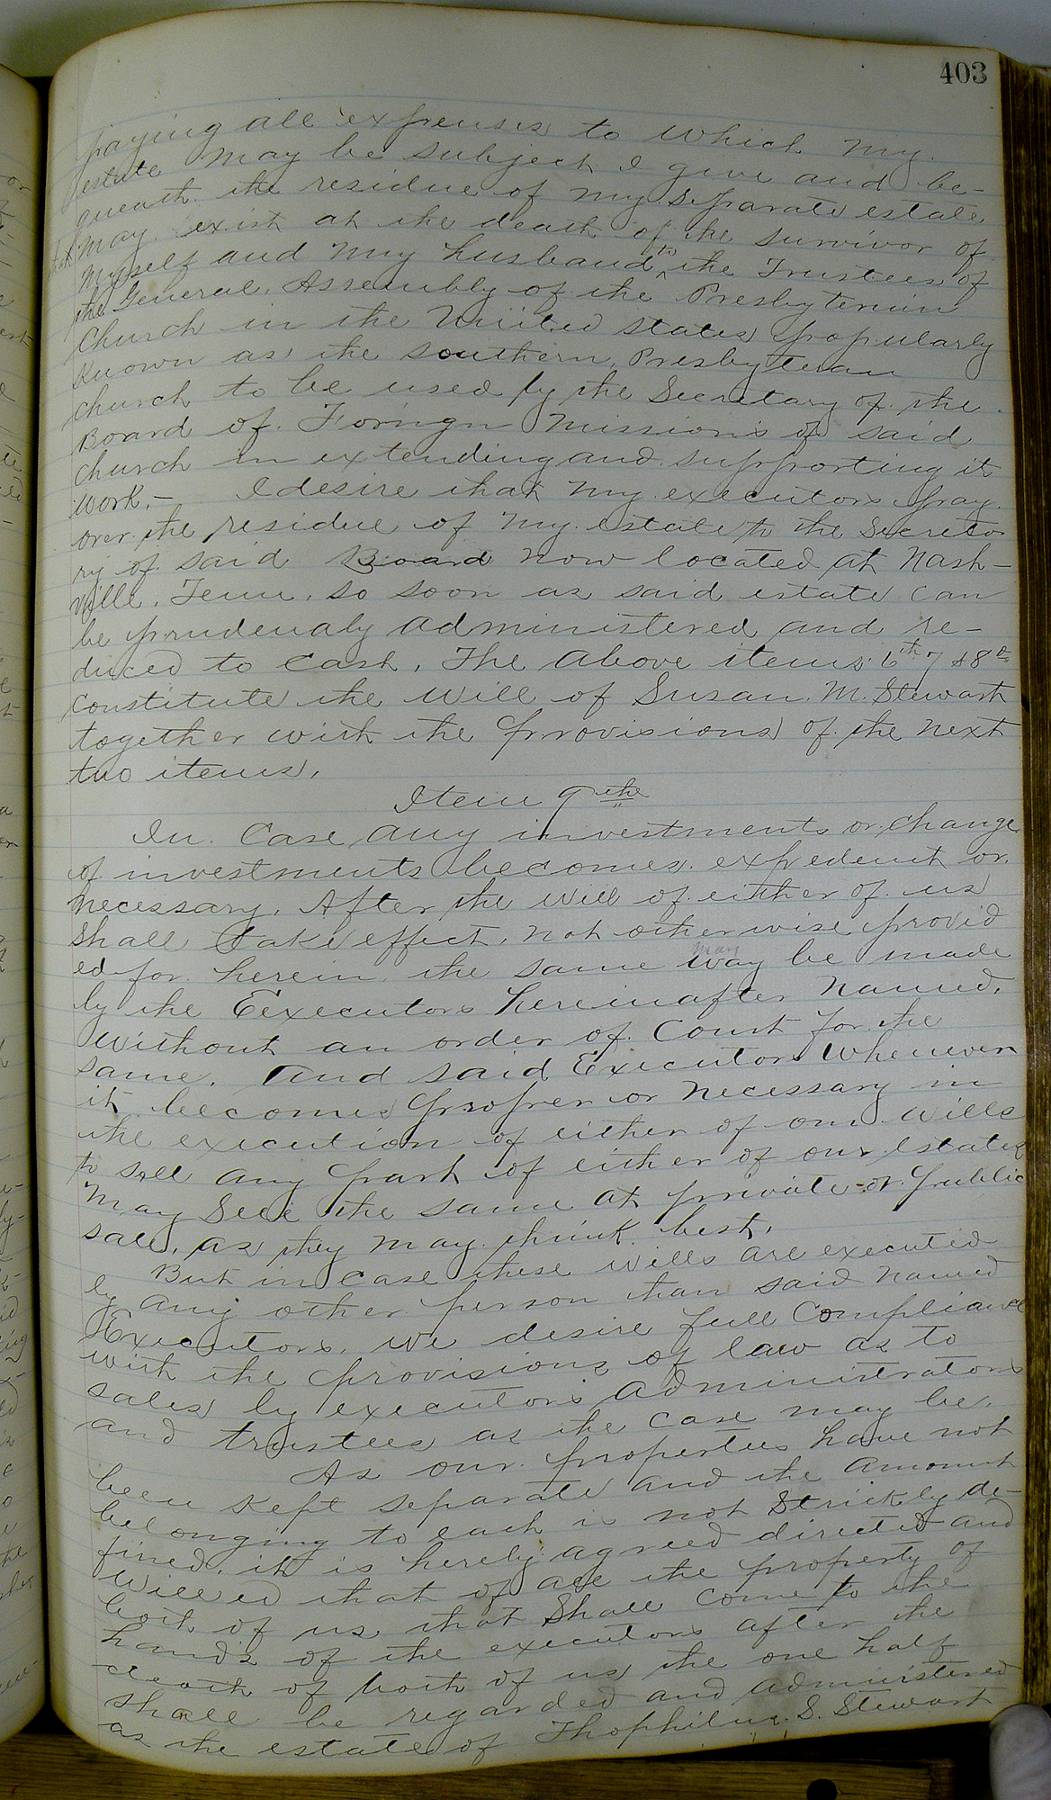 403
paying all expenses to which my
estate may be subject I give and be-
queath the residue of my separate estate
that may exist at the death of the survivor of
myself and my husband to the Trustees of
the General Assembly of the Presbyterian
Church in the United States popularly
known as the Southern Presbyterian
church to be used by the Secretary of the
Board of Foriegn Missions of said
church in extending and supporting it
work.- I desire that my executors pay
over the residue of my estate to the Secreta
ry of said Board now located at Nash-
ville, Tenn. so soon as said estate can
be prudenaly administered and re-
duced to cash. The above items 6th 7 & 8th
constitute the will of Susan M. Stewart
together with the provisions of the next
two items.
Item 9the
In Case any investments or change
of investments becomes expedent or
necessary. After the will of either of us
shall take effect, not otherwise provid
ed for herein the same may way be made
by the Eexecutors hereinafter named,
without an order of Court for the
same. And said Executors whenever
it becomes proper or necessary in
the execution of either of our wills
to sell any part of either of our Estates
may sell the same at private or public
sale, as they may think best.
But in case these wills are executed
by any other person than said named
Executors, we desire full compliance
with the provisions of law as to
sales by executors administrators
and trustees as the case may be.
As our properties have not
been kept separate and the amount
belonging to each is not Strickly de-
fined, it is hereby agreed directed and
willed that of all the property of
both of us that shall come to the
hands of the executors after the
death of both of us the one half
shall be regarded and administered
as the estate of Thophilus S. Stewart